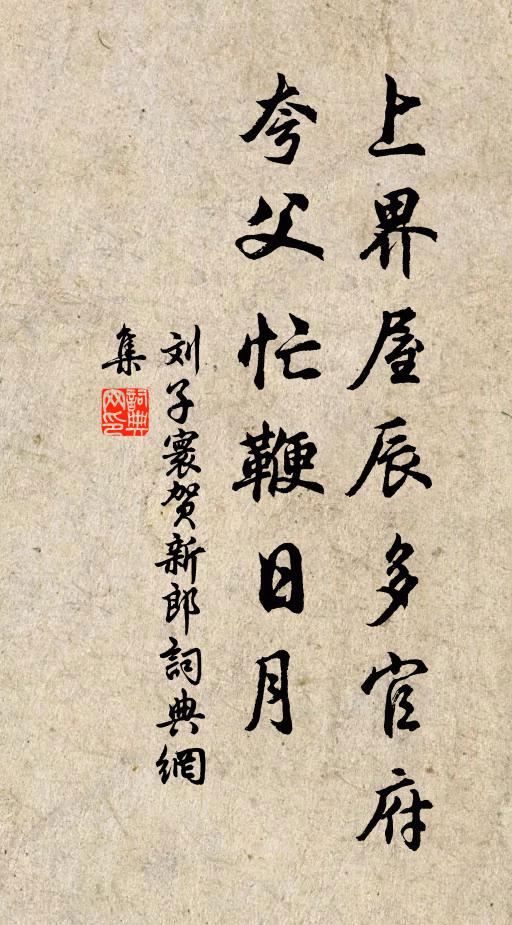 上界屋辰多官府
夸父忙鞭日月
刘子寰贺新郎詞典網
集
詞典
网印